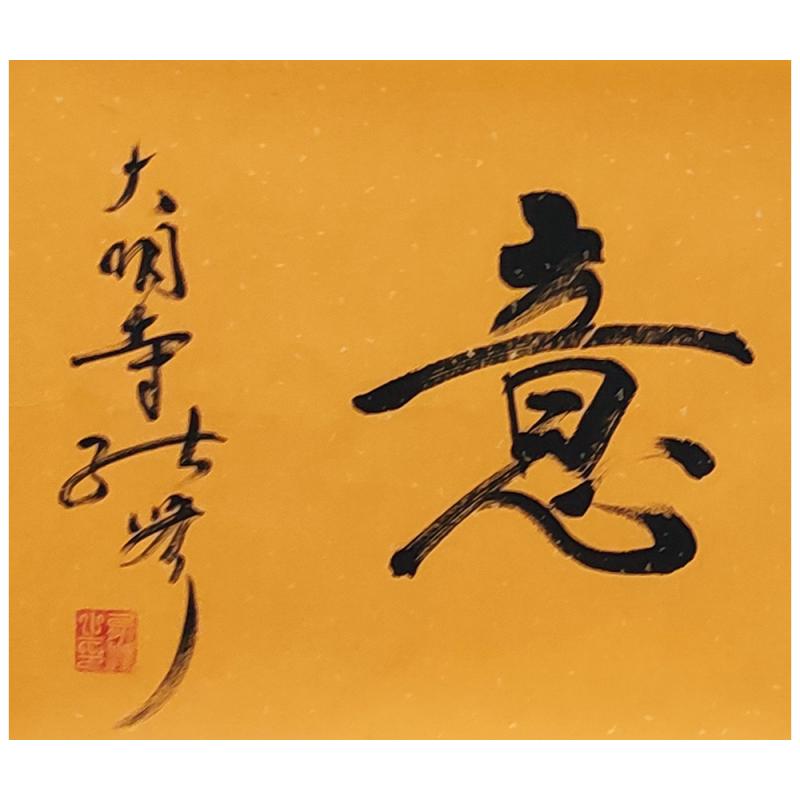 意
大明寺能修